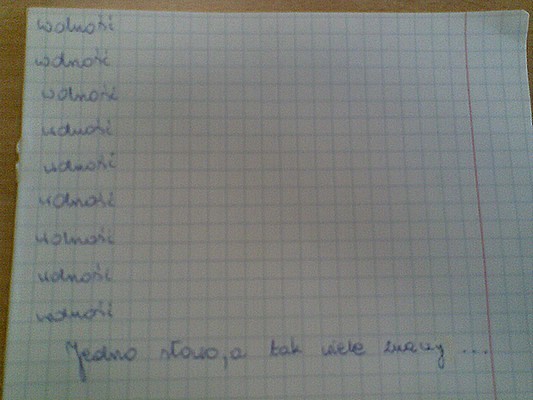 wolność
wolność
wolność
wolność
wolność
wolność
wolność
wolność
wolność
Jedno słowo, a tak wiele znaczy ...